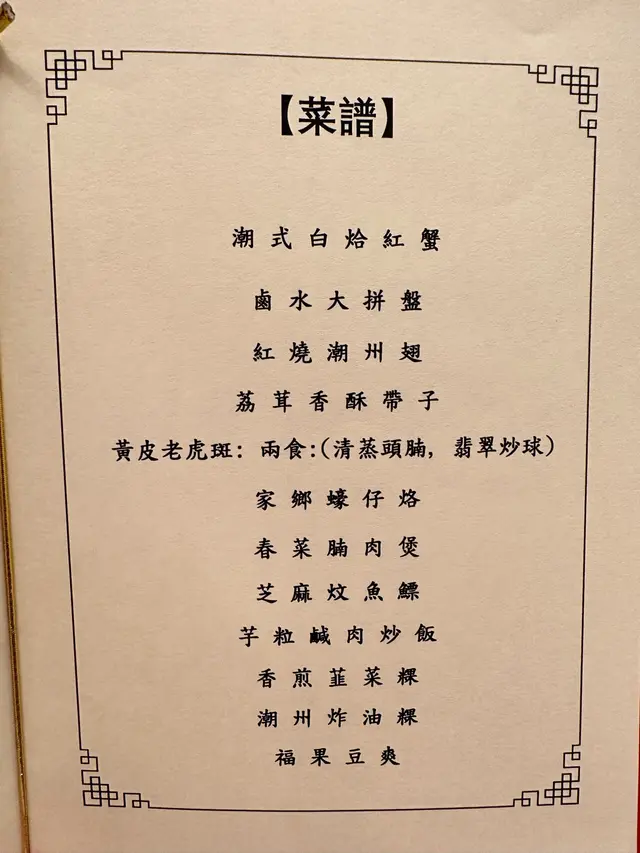 【菜譜】
潮式白烚紅蟹
鹵水大拼盤
紅燒潮州翅
荔茸香酥帶子
黃皮老虎斑：兩食：(清蒸頭腩，翡翠炒球)
家鄉蠔仔烙
春菜腩肉煲
芝麻炆魚鰾
芋粒鹹肉炒飯
香煎韮菜粿
潮州炸油粿
福果豆爽